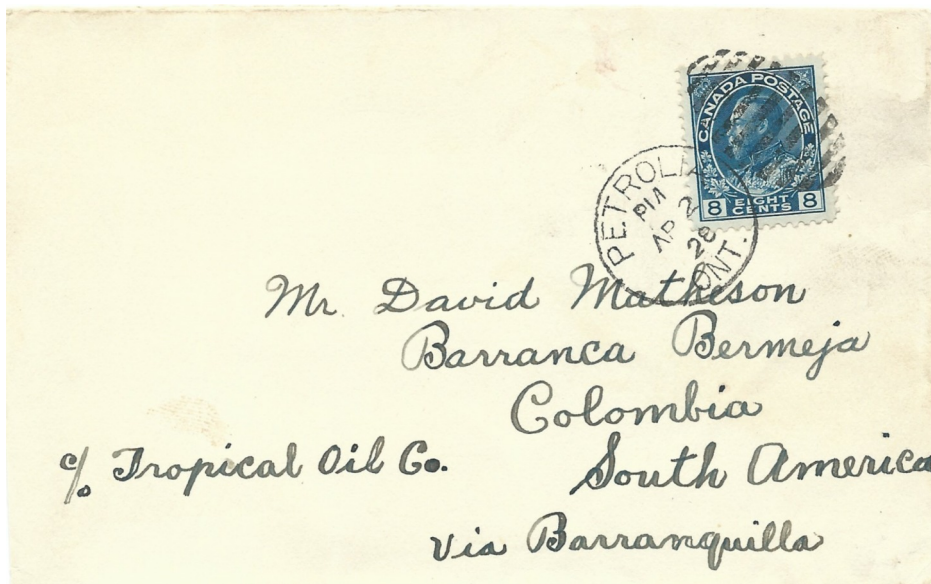 CANADA POSTAGE
8 EIGHT CENTS 8
PETROLIA
PM 2
AP
26
ONT.
Mr. David Matheson
Barranca Bermeja
Colombia
c/o Tropical Oil Co. South America
via Barranquilla